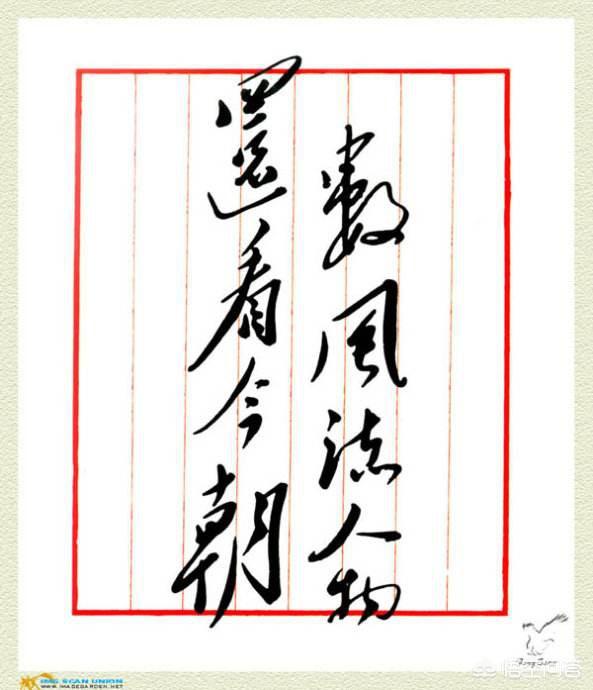 數風流人物
還看今朝
IMG SCAN UNION
WWW.IMAGEGARDEN.NET